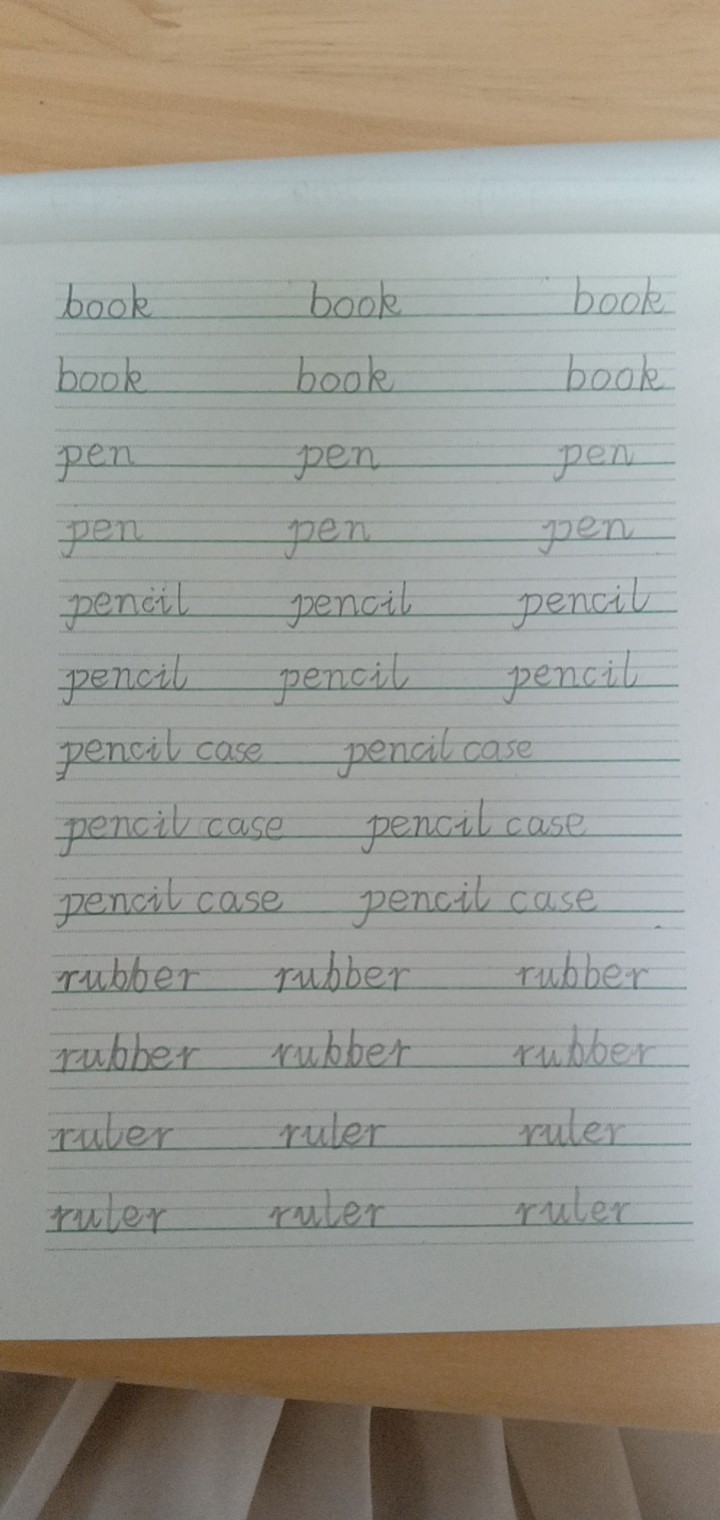 book book book
book book book
pen pen pen
pen pen pen
pencil pencil pencil
pencil pencil pencil
pencil case pencil case
pencil case pencil case
pencil case pencil case
rubber rubber rubber
rubber rubber rubber
ruler ruler ruler
ruler ruler ruler